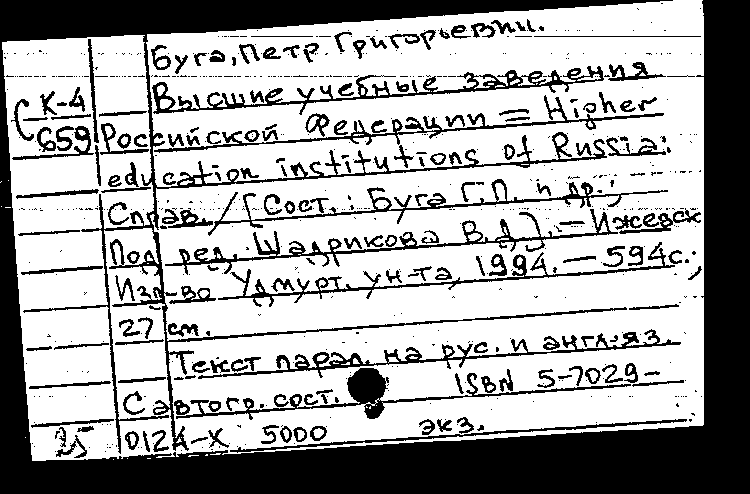 Буга, Петр Григорьевич.
Высшие учебные заведения
К-4
659
Российской Федерации = Higher
education institutions of Russia:
Справ. / [Сост.: Буга Г.П. и др.;
Под ред. Шадрикова В.Д.]. — Ижевск
Изд-во Удмурт. ун-та, 1994. — 594с.;
27 см.
Текст парал. на рус. и англ. яз.
С автогр. сост. ISBN 5-7029-
0124-X 5000 экз.
25